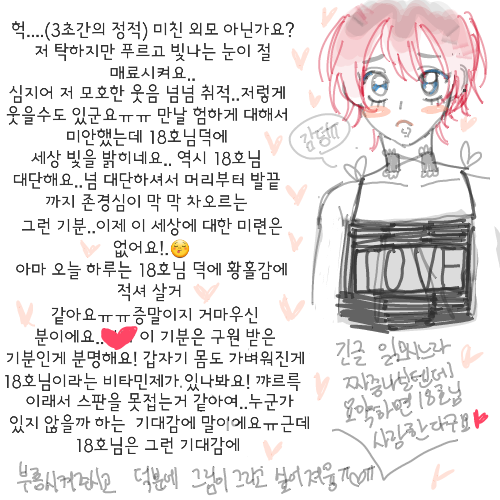 헉....(3초간의 정적) 미친 외모 아닌가요?
저 탁하지만 푸르고 빛나는 눈이 절
매료시켜요..
심지어 저 모호한 웃음 넘넘 취적..저렇게
웃을수도 있군요ㅠㅠ 만날 험하게 대해서
미안했는데 18호님덕에
세상 빛을 밝히네요.. 역시 18호님
대단해요..넘 대단하셔서 머리부터 발끝
까지 존경심이 막 막 차오르는
그런 기분..이제 이 세상에 대한 미련은
없어요!.😌
아마 오늘 하루는 18호님 덕에 황홀감에
적셔 살거
같아요ㅠㅠ증말이지 거마우신
분이에요.. 이 기분은 구원 받은
기분인게 분명해요! 갑자기 몸도 가벼워진게
18호님이라는 비타민제가.있나봐요! 꺄르륵
이래서 스판을 못접는거 같아여..누군가
있지 않을까 하는 기대감에 말이에요ㅠ근데
18호님은 그런 기대감에
부흥시켜주시고 덕분에 그림이 그리고 싶어져융ㅠ
감덩ㅠ
LOVE
긴글 읽으시느라
짜증나실텐데
요약하면 18호님
사랑한다구요